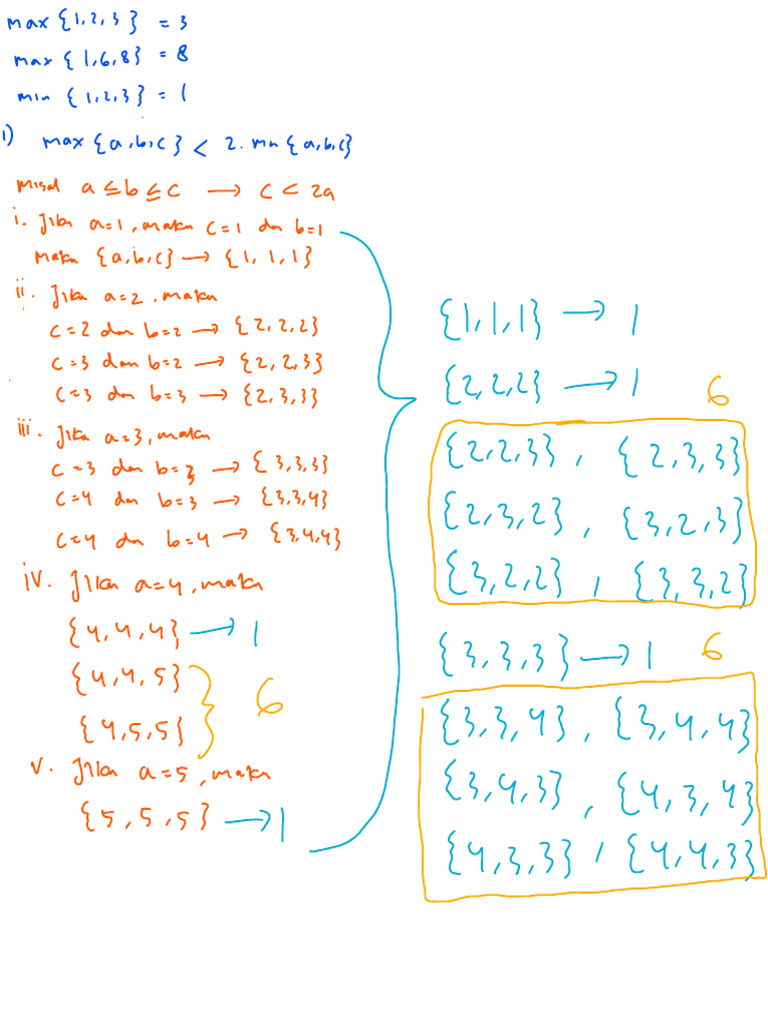 max {1,2,3} = 3
max {1,6,8} = 8
min {1,2,3} = 1
1) max {a,b,c} < 2. min {a,b,c}
misal a ≤ b ≤ c → c < 2a
i. Jika a=1, maka c=1 dan b=1
maka {a,b,c} → {1, 1, 1}
ii. Jika a=2, maka
c=2 dan b=2 → {2,2,2}
c=3 dan b=2 → {2,2,3}
c=3 dan b=3 → {2,3,3}
iii. Jika a=3, maka
c=3 dan b=3 → {3,3,3}
c=4 dan b=3 → {3,3,4}
c=4 dan b=4 → {3,4,4}
iv. Jika a=4, maka
{4,4,4} → 1
{4,4,5}
{4,5,5}
6
v. Jika a=5, maka
{5,5,5} → 1
{1,1,1} → 1
{2,2,2} → 1
6
{2,2,3}, {2,3,3}
{2,3,2}, {3,2,3}
{3,2,2}, {3,3,2}
{3,3,3} → 1
6
{3,3,4}, {3,4,4}
{3,4,3}, {4,3,4}
{4,3,3}, {4,4,3}